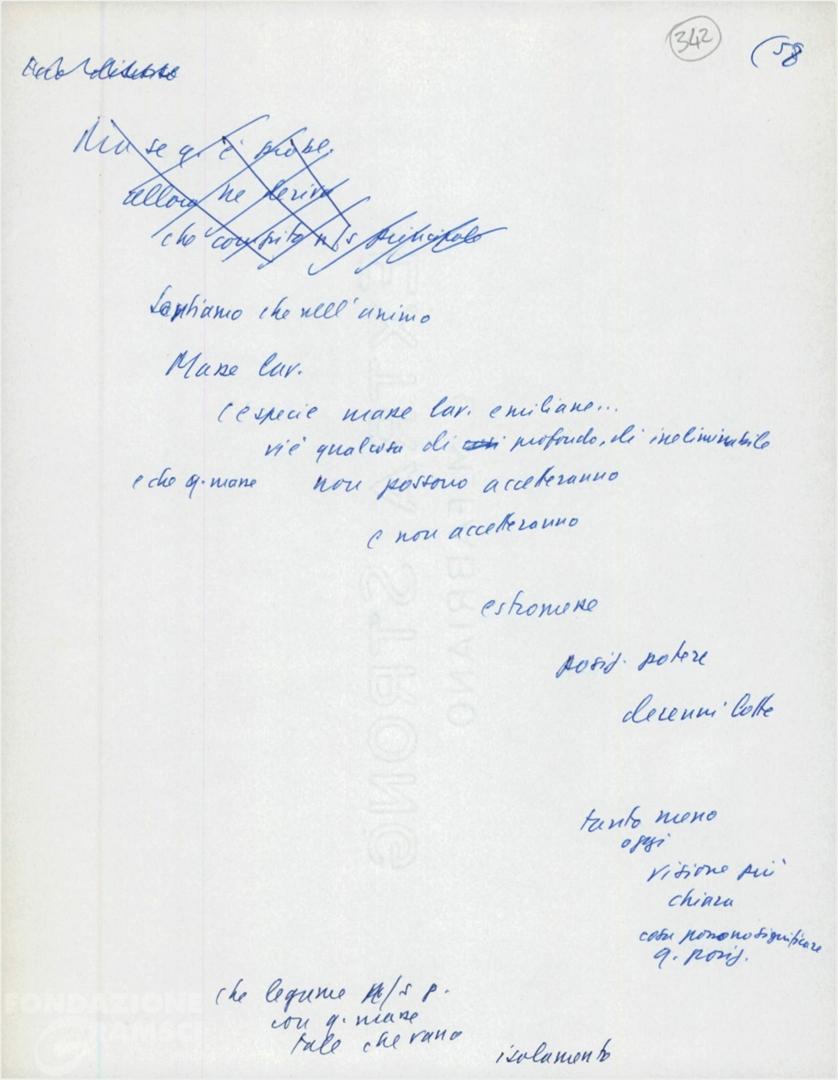 342
(58
Ma se q. è probl.
allora ne deriva
che compito n/s principale
Sentiamo che nell'animo
Masse lav.
(especie masse lav. emiliane...
vi è qualcosa di così profondo, di ineliminabile
e che q. masse non possono accetteranno
e non accetteranno
estromesse
posiz. potere
decenni lotte
tanto meno
oggi
visione più
chiara
cosa possono significare
q. posiz.
che legame n/s p.
con q. masse
tale che vano
isolamento
EXTRA STRONG
FABRIANO
FONDAZIONE
GRAMSCI